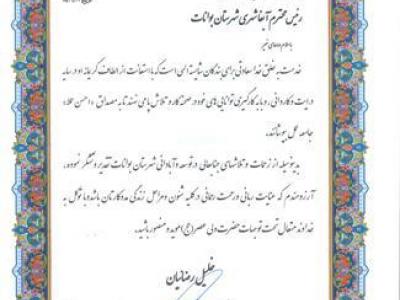 رئیس محترم آبفا شهری شهرستان بوانات
با سلام و دعای خیر
خدمت به خلق خدا سعادتی برای بندگان شایسته الهی است که با استعانت از الطاف کریمانه او در سایه
درایت و کاردانی، و با به کارگیری توانایی های خود در صحنه کار و تلاش پا می نهند تا به مصداق «احسن عملا»
جامه عمل بپوشانند.
بدینوسیله از زحمات و تلاشهای جنابعالی در توسعه و آبادانی شهرستان بوانات تقدیر و تشکر نموده،
آرزومندم که عنایت ربانی و رحمت رحمانی در کلیه شئون و مراحل زندگی مددکارتان باشد و با توکل به
خداوند متعال تحت توجهات حضرت ولی عصر(عج) موید و منصور باشید.
خلیل رضائیان